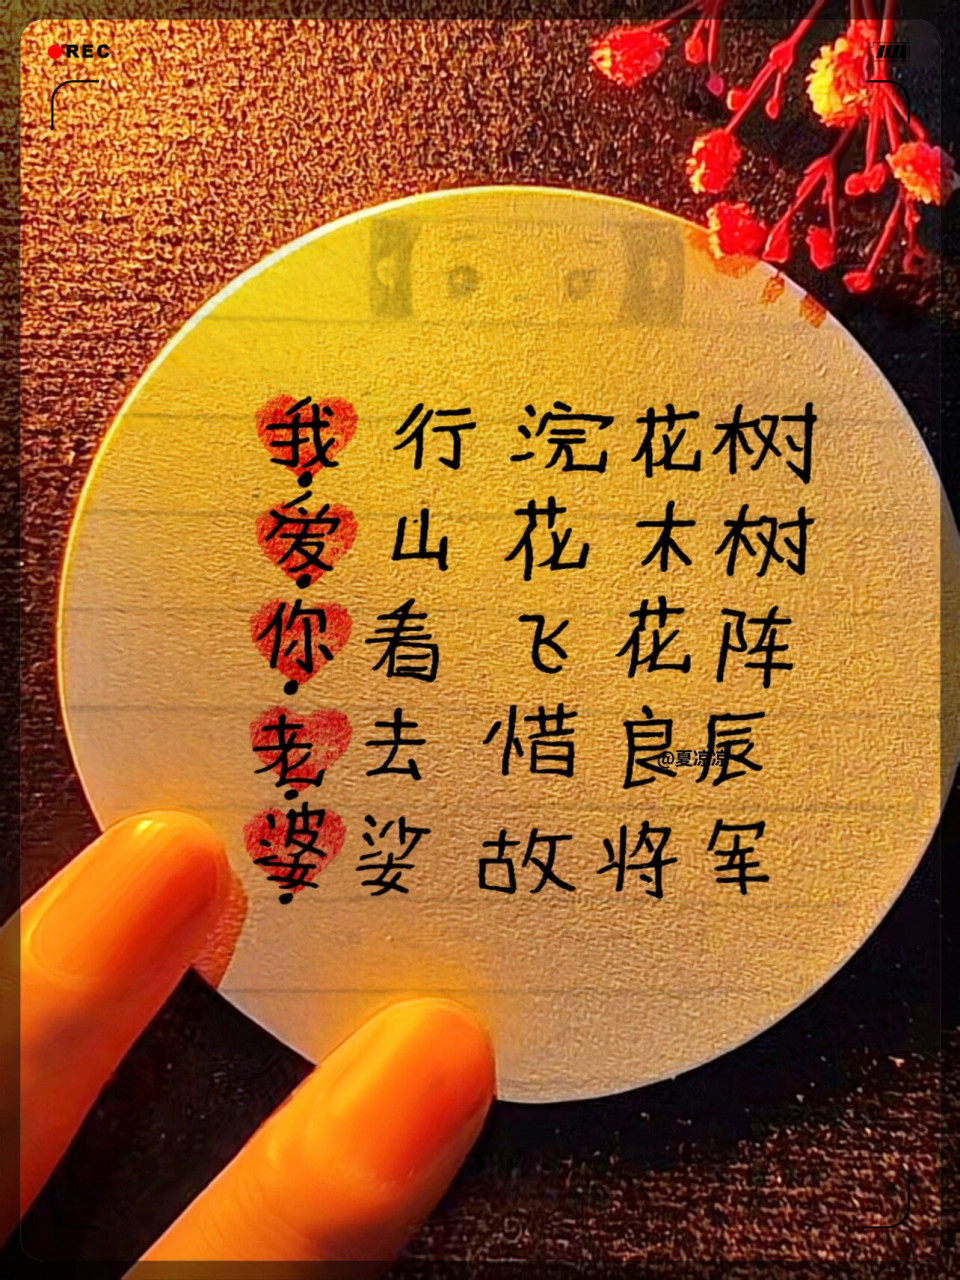 REC
我行浣花树
爱山花木树
你看飞花阵
老去惜良辰
@夏凉凉
婆娑故将军